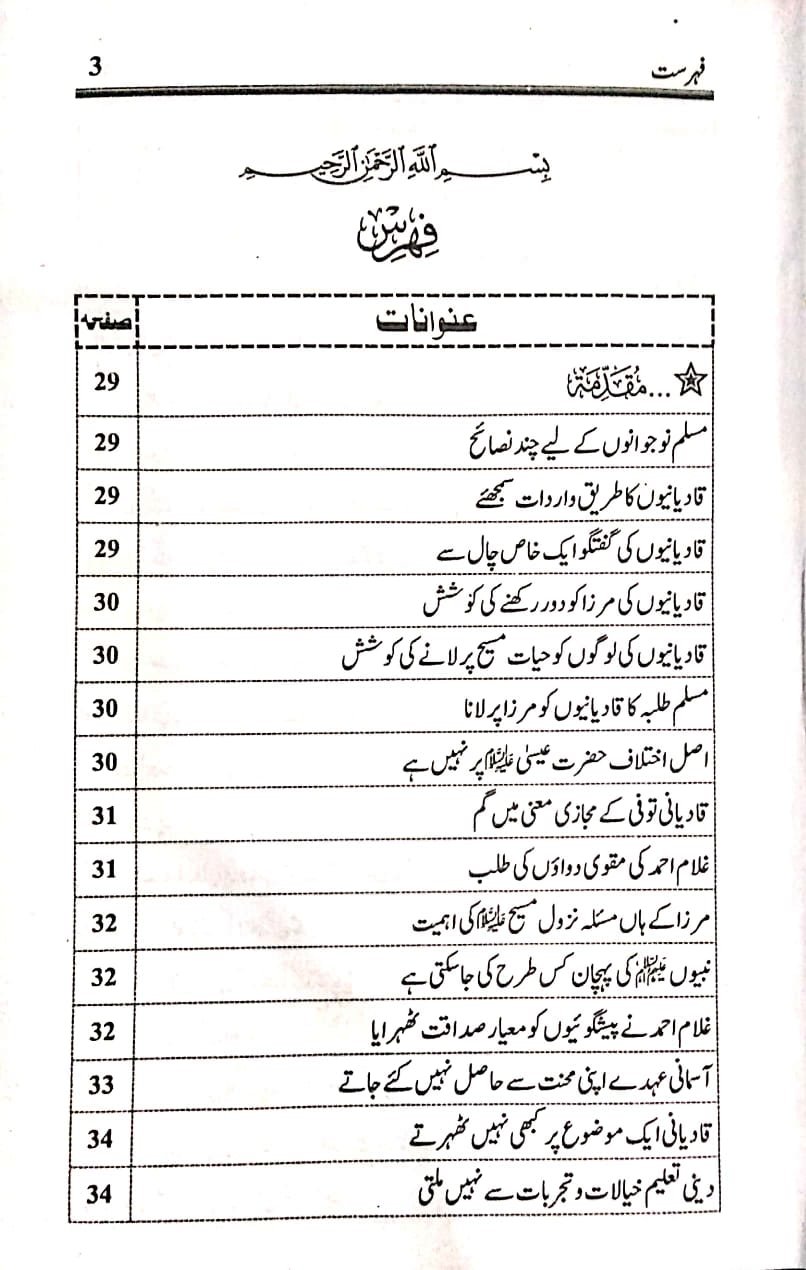 فہرست 3
بِسْمِ اللّٰهِ الرَّحْمٰنِ الرَّحِيْمِ
فِهْرِسْ
عنوانات صفحہ
☆...مُقَدِّمَة 29
مسلم نوجوانوں کے لیے چند نصائح 29
قادیانیوں کا طریق واردات سمجھئے 29
قادیانیوں کی گفتگو ایک خاص چال سے 29
قادیانیوں کی مرزا کو دور رکھنے کی کوشش 30
قادیانیوں کی لوگوں کو حیات مسیح پر لانے کی کوشش 30
مسلم طلبہ کا قادیانیوں کو مرزا پر لانا 30
اصل اختلاف حضرت عیسیٰ علیہ السلام پر نہیں ہے 30
قادیانی توفی کے مجازی معنی میں گم 31
غلام احمد کی مقوی دواؤں کی طلب 31
مرزا کے ہاں مسئلہ نزول مسیح علیہ السلام کی اہمیت 32
نبیوں علیہم السلام کی پہچان کس طرح کی جاسکتی ہے 32
غلام احمد نے پیشگوئیوں کو معیار صداقت ٹھہرایا 32
آسمانی عہدے اپنی محنت سے حاصل نہیں کئے جاتے 33
قادیانی ایک موضوع پر کبھی نہیں ٹھہرتے 34
دینی تعلیم خیالات و تجربات سے نہیں ملتی 34